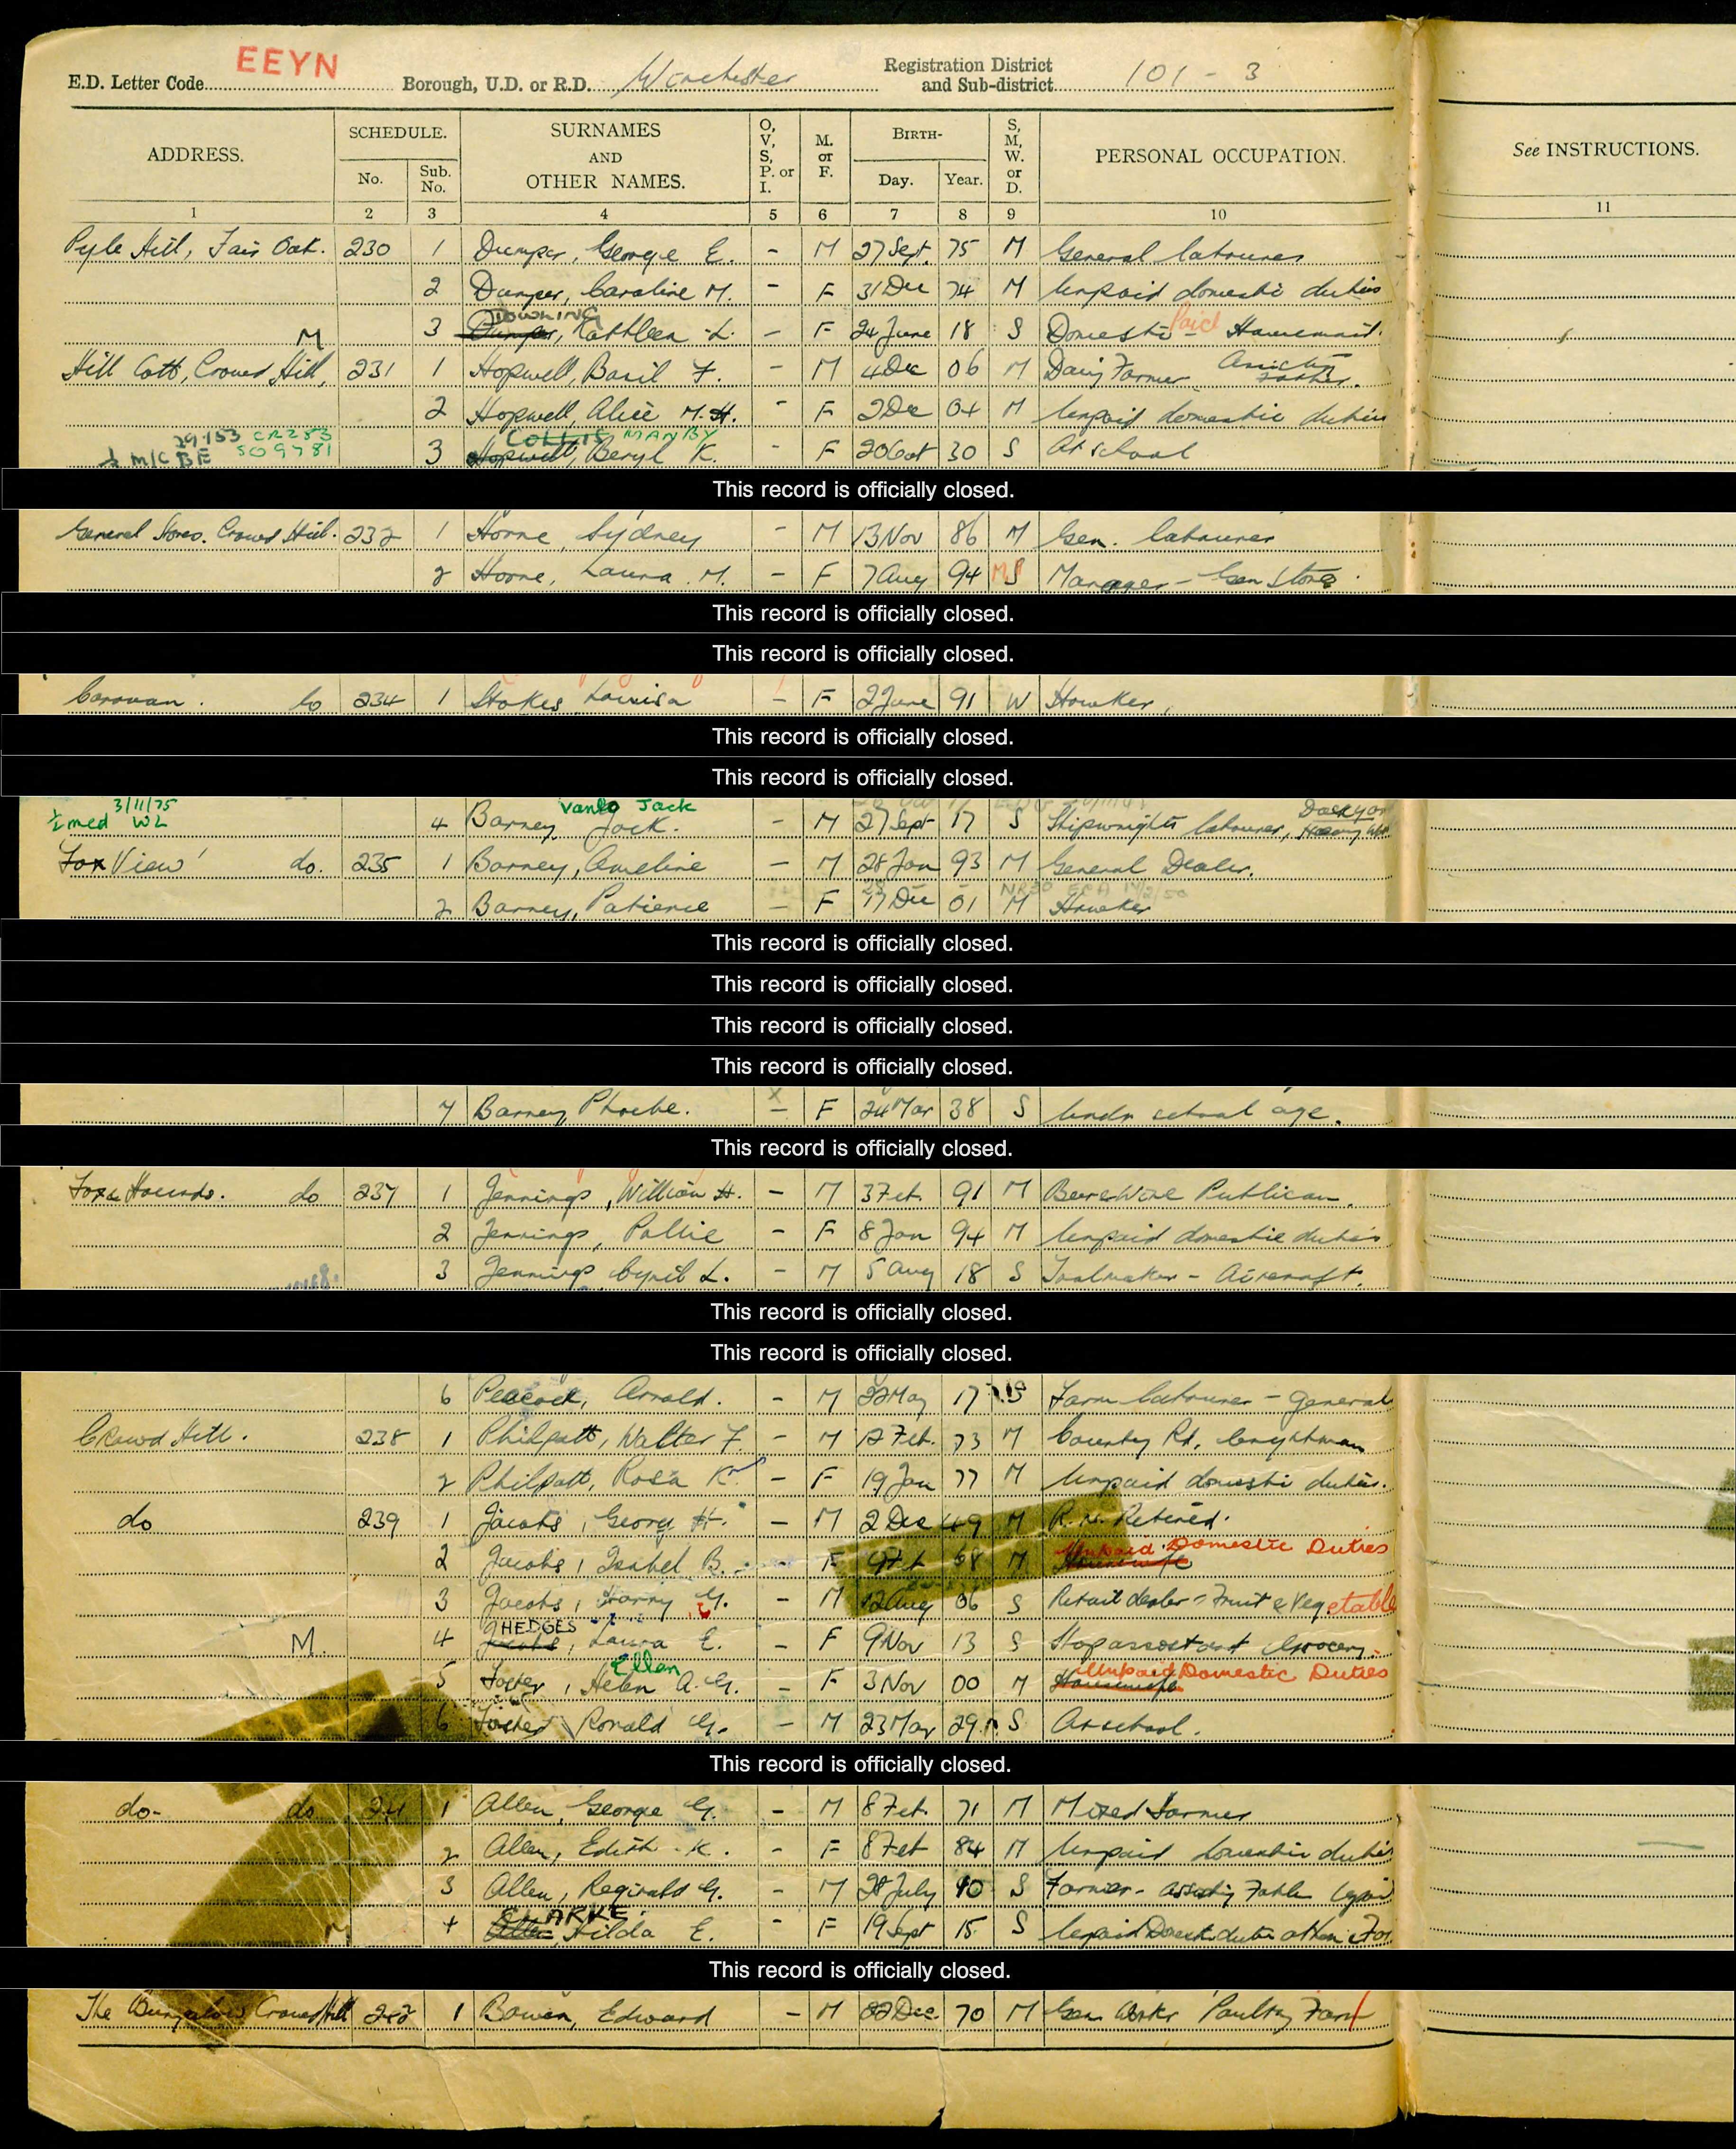 E.D. Letter Code EEYN Borough, U.D. or R.D. Winchester Registration District and Sub-district 101 - 3
ADDRESS. SCHEDULE. No. Sub. No. SURNAMES AND OTHER NAMES. O, V, S, P. or I. M. or F. BIRTH- Day. Year. S, M, W. or D. PERSONAL OCCUPATION. See INSTRUCTIONS.
1 2 3 4 5 6 7 8 9 10 11
Pyle Hill, Fair Oak. 230 1 Dumper, George E. - M 27 Sept. 75 M General labourer
2 Dumper, Caroline M. - F 31 Dec 74 M Unpaid domestic duties
DOWLING
M 3 Dumper, Kathleen L. - F 24 June 18 S Domestic Paid - Housemaid.
Hill Cott, Crowd Hill, 231 1 Hopwell, Basil F. - M 4 Dec 06 M Dairy Farmer Assisting Father.
2 Hopwell, Alice M. H. - F 2 Dec 04 M Unpaid domestic duties
29·153 CR283 COLLIS MANBY
½ M/C BE 509781 3 Hopwell, Beryl K. - F 20 Oct 30 S At school
This record is officially closed.
General Stores. Crowd Hill. 232 1 Horne, Sydney - M 13 Nov 86 M Gen. labourer
2 Horne, Laura M. - F 7 Aug 94 M S Manager - Gen Store
This record is officially closed.
This record is officially closed.
Caravan. do 234 1 Stokes Louisa - F 2 June 91 W Hawker
This record is officially closed.
This record is officially closed.
3/11/75 Vanlo Jack
½ med WL 4 Barney, Jack. - M 27 Sept 17 S Shipwrights labourer, Dockyard
Fox View' do. 235 1 Barney, Ameline - M 28 Jan 93 M General Dealer.
2 Barney, Patience - F 17 Dec 01 M Hawker
This record is officially closed.
This record is officially closed.
This record is officially closed.
This record is officially closed.
7 Barney, Phoebe. - F 24 Mar 38 S Under school age.
This record is officially closed.
Fox & Hounds. do 237 1 Jennings, William H. - M 3 Feb. 91 M Beer & Wine Publican
2 Jennings, Pollie - F 8 Jan 94 M Unpaid domestic duties
3 Jennings Cyril L. - M 5 Aug 18 S Toolmaker - Aircraft.
This record is officially closed.
This record is officially closed.
6 Peacock, Arnold. - M 22 May 17 S Farm labourer - general
Crowd Hill. 238 1 Philpott, Walter F. - M 12 Feb. 73 M County Rd. lengthman
2 Philpott, Rosa K. - F 19 Jan 77 M Unpaid domestic duties.
do 239 1 Jacobs, George H. - M 2 Dec 49 M R.N. Retired.
2 Jacobs, Isabel B. - F 9 Feb 68 M Housewife Unpaid Domestic Duties
3 Jacobs, Harry G. - M 12 Aug 06 S Retail dealer - Fruit & Vegetable
HEDGES
M. 4 Jacobs, Laura E. - F 9 Nov 13 S Shop assistant Grocery.
Ellen
5 Foster, Helen A. G. - F 3 Nov 00 M Housewife Unpaid Domestic Duties
6 Foster Ronald G. - M 23 Mar 29 S At school.
This record is officially closed.
do - do 241 1 Allen, George G. - M 8 Feb. 71 M Mixed Farmer
2 Allen, Edith K. - F 8 Feb 84 M Unpaid domestic duties
3 Allen, Reginald G. - M 28 July 10 S Farmer - assisting Father
CLARKE
M 4 Allen Hilda E. - F 19 Sept 15 S
This record is officially closed.
The Bungalow Crowd Hill 242 1 Bowen, Edward - M 22 Dec. 70 M Gen Worker Poultry Farm